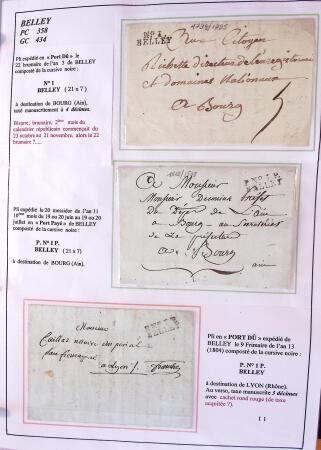 BELLEY
PC 358
GC 434
Pli expédié en « Port Dû » le
22 brumaire de l'an 3 de BELLEY
composté de la cursive noire :
N° 1
BELLEY (21 x 7)
à destination de BOURG (Ain),
taxé manuscritement à 4 décimes.
Bizarre, brumaire, 2ème mois du
calendrier républicain commençait du
23 octobre au 21 novembre, alors la 22
brumaire ?....
N° 1
BELLEY
1794/1795
Citoyen
et domaines Nationaux
a Bourg
5
Pli expédié le 20 messidor de l'an 11
10ème mois du 19 ou 20 juin au 19 ou 20
juillet en « Port Payé » de BELLEY
composté de la cursive noire :
P. N° 1 P.
BELLEY (21 x 7)
à destination de BOURG (Ain).
P. N° 1 P.
BELLEY
A Monsieur
Monsieur
Du Dép de l'ain
a Bourg
De La préfecture
a Bourg
ain
Monsieur
notaire
a Lyon
BELLEY
Pli en « PORT DÛ » expédié de
BELLEY le 9 Frimaire de l'an 13
(1804) composté de la cursive noire :
P. N° 1 P.
BELLEY
à destination de LYON (Rhône).
Au verso, taxe manuscrite 3 décimes
avec cachet rond rouge (de taxe
acquittée ?).
1 1